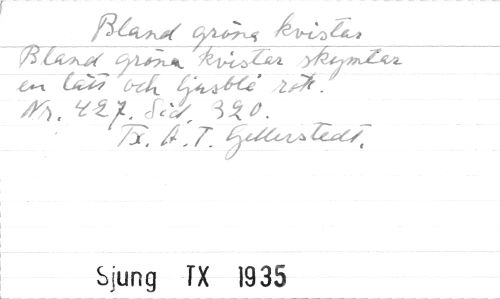 Bland gröna kvistar
Bland gröna kvistar skymtar
en lätt och ljusblå rök.
Nr. 427. Sid. 320.
Tx. A. T. Gellerstedt.
Sjung TX 1935